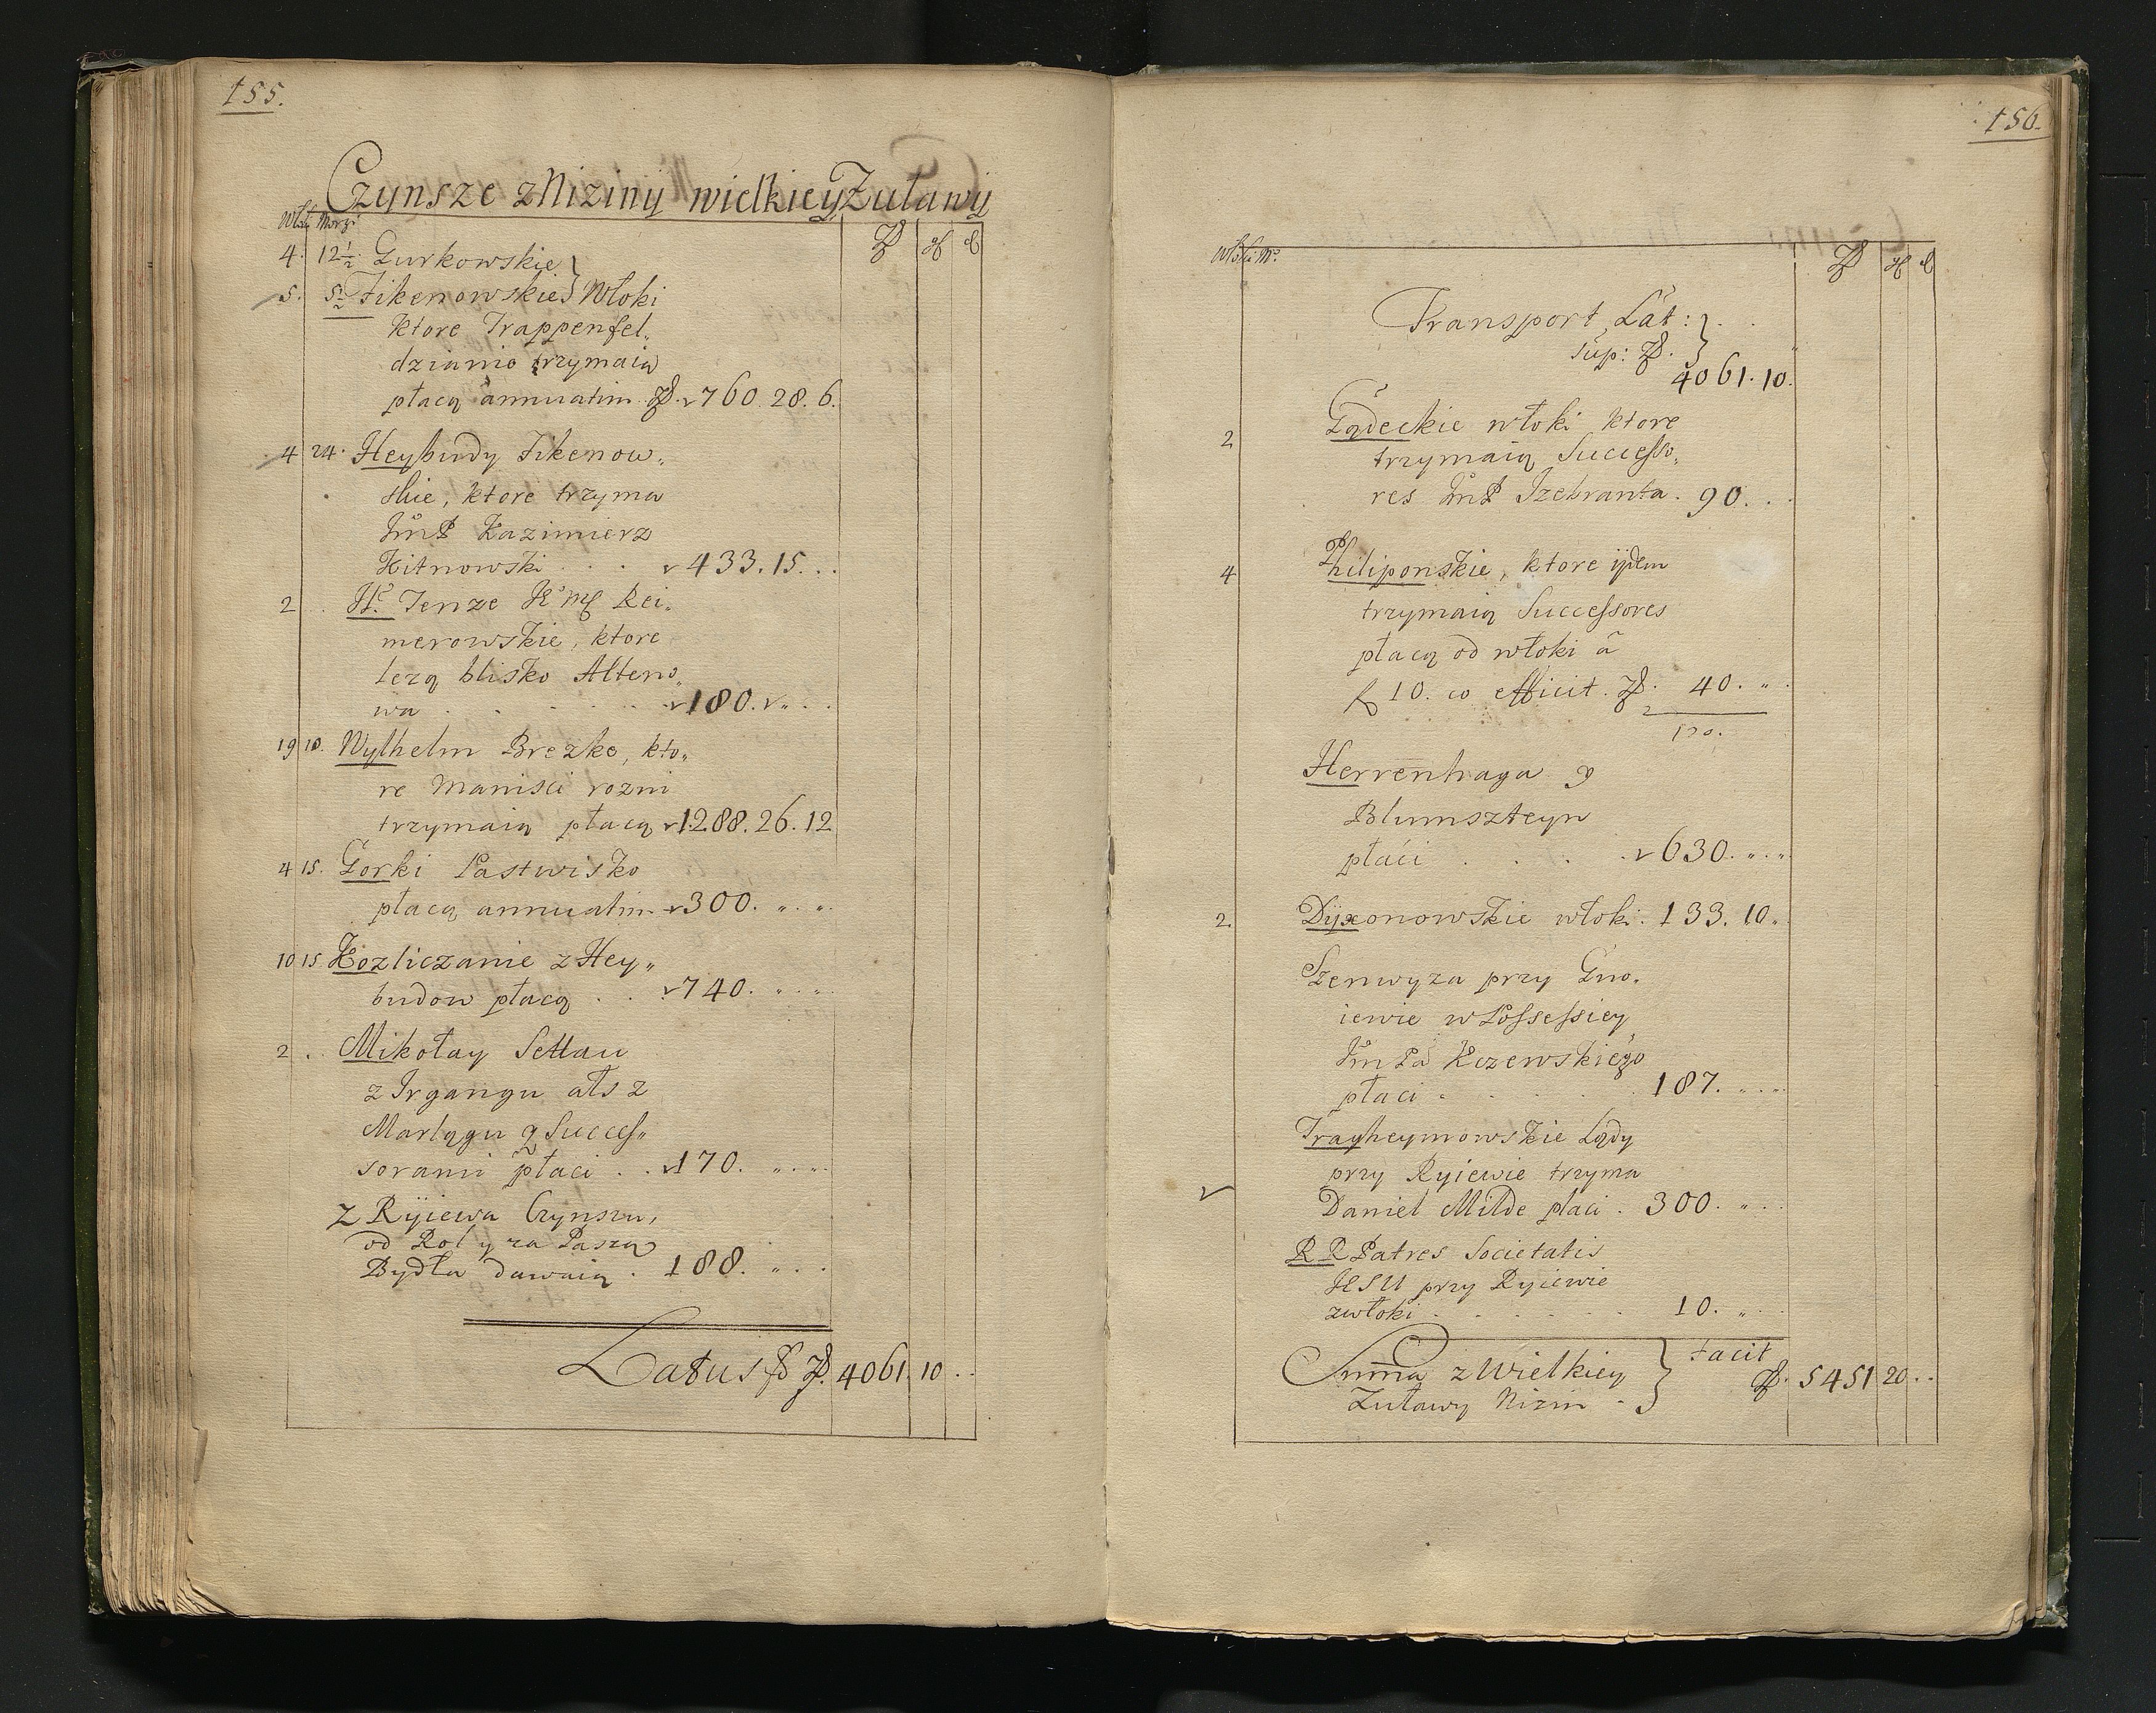 155.
Czynsze z Niziny wielkiey Zuławy
Włok Morg:
4. 12½ Gurkowskie
5. 5½ Fikenowskie} Włoki
ktore Trappenfel„
dzianie trzymaią
płacą annuatim. 760. 28. 6.
4 24. Heybudy Fikenow„
skie, ktore trzyma
JmP Kazimierz
Kitnowski . . . 433. 15. . .
2 . . Tenze Rei„
merowskie, ktore
lezą blisko Alteno„
wa . . . . . 180. „ . .
19 10. Wylhelm Brezke, kto„
re Maniści rozni
trzymaią płacą 1288. 26. 12
4 15. Gorki Pastwisko
płacą annuatim 300. „ . „
10 15 Kozliczanie z Hey„
budow płacą . . . 740. „ . . „
2 . . Mikołay Settau
z Irgangu als z
Marlągu q Succes„
sorami płaci . . 170. „ . „
Z Ryiewa Czynszu,
od Rol y za Paszą
Bydła dawaią . 188. „ . .
Latus 4061. 10 . .
156.
Włoki M.
Transport Lat: } . .
sup:
4061. 10.
2 Lądeckie włoki ktore
trzymaią Successo„
res JmP Izebranta. 90. . .
4 Philiponskie, ktore ijdem
trzymaią Successores
płacą od włoki â
10. co efficit. 40. „ .
130.
Herrenhaga
Blumszteyn
płaci . . . . 630. „ . „
2. Dyxonowskie włoki. 133. 10.
Szenwyza przy Gno„
iewie w Possessiey
Jm Pa Kczewskiego
płaci . . . . . 187. „ . „
Tragheymowskie Lądy
przy Ryiewie trzyma
Daniel Milde płaci . 300. „ . .
RR Patres Societatis
JESU przy Ryiewie
z włoki . . . . . 10. „ . .
Summa z Wielkiey } facit
5451 20 . .
Zuławy Nizin .